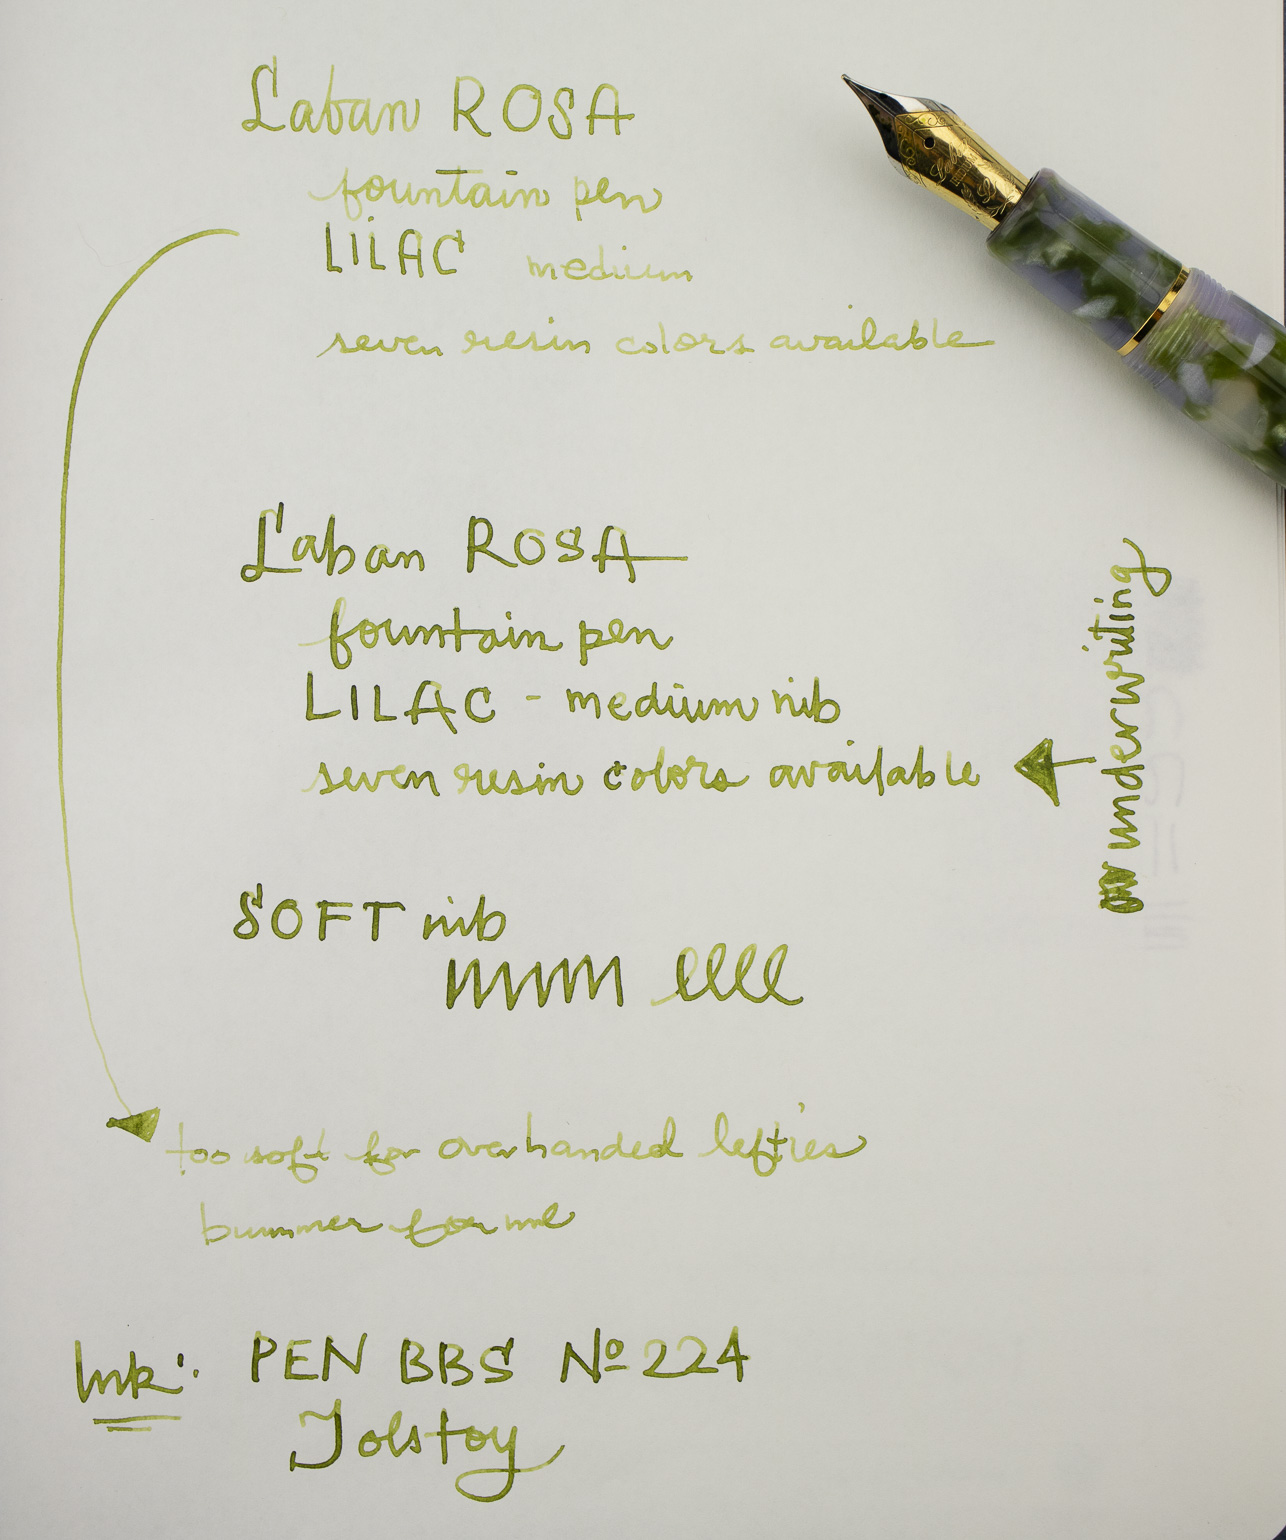 Laban ROSA
fountain pen
LILAC medium
seven resin colors available
Laban ROSA
fountain pen
LILAC - medium nib
seven resin colors available
underwriting
SOFT nib
too soft for overhanded lefties
bummer for me
Ink: PEN BBS Nº 224
Tolstoy